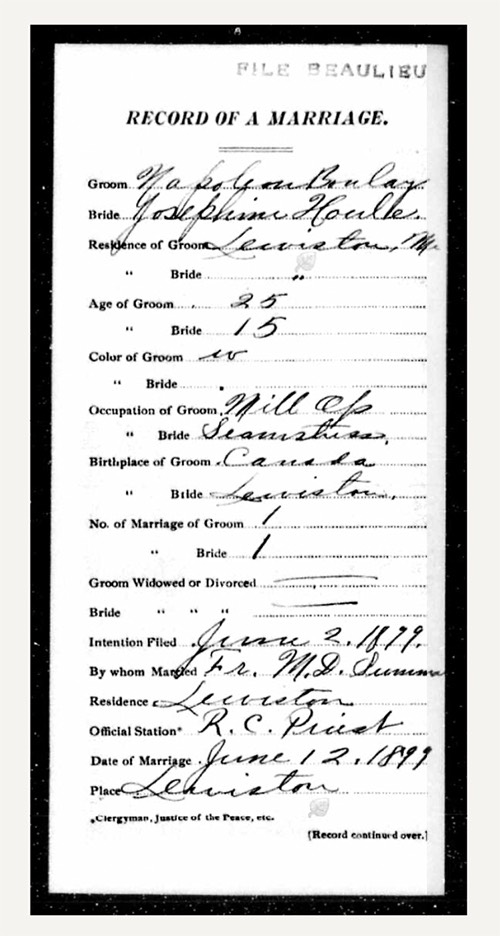 FILE BEAULIEU
RECORD OF A MARRIAGE.
Groom Napoleon Boulay
Bride Josephine Houle.
Residence of Groom Lewiston, Me
" Bride "
Age of Groom 25
" Bride 15
Color of Groom w
" Bride
Occupation of Groom Mill Op
" Bride Seamstress.
Birthplace of Groom Canada
" Bride Lewiston.
No. of Marriage of Groom 1
" Bride 1
Groom Widowed or Divorced
Bride " " "
Intention Filed June 2. 1899.
By whom Married Fr. M.D. Summa
Residence Lewiston
Official Station* R. C. Priest
Date of Marriage June 12. 1899
Place Lewiston
*Clergyman, Justice of the Peace, etc.
[Record continued over.]